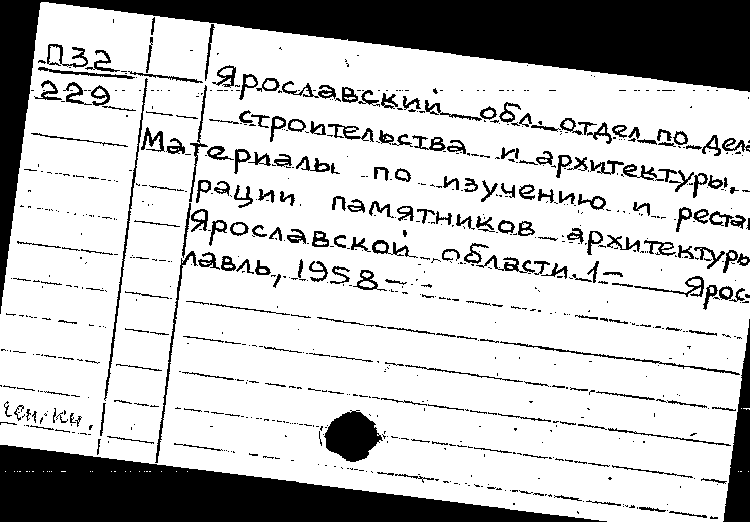 П32
229
Ярославский обл. отдел по дела
строительства и архитектуры.
Материалы по изучению и рестав
рации памятников архитектуры
Ярославской области. 1– Ярос-
лавль, 1958–
ген/кн.